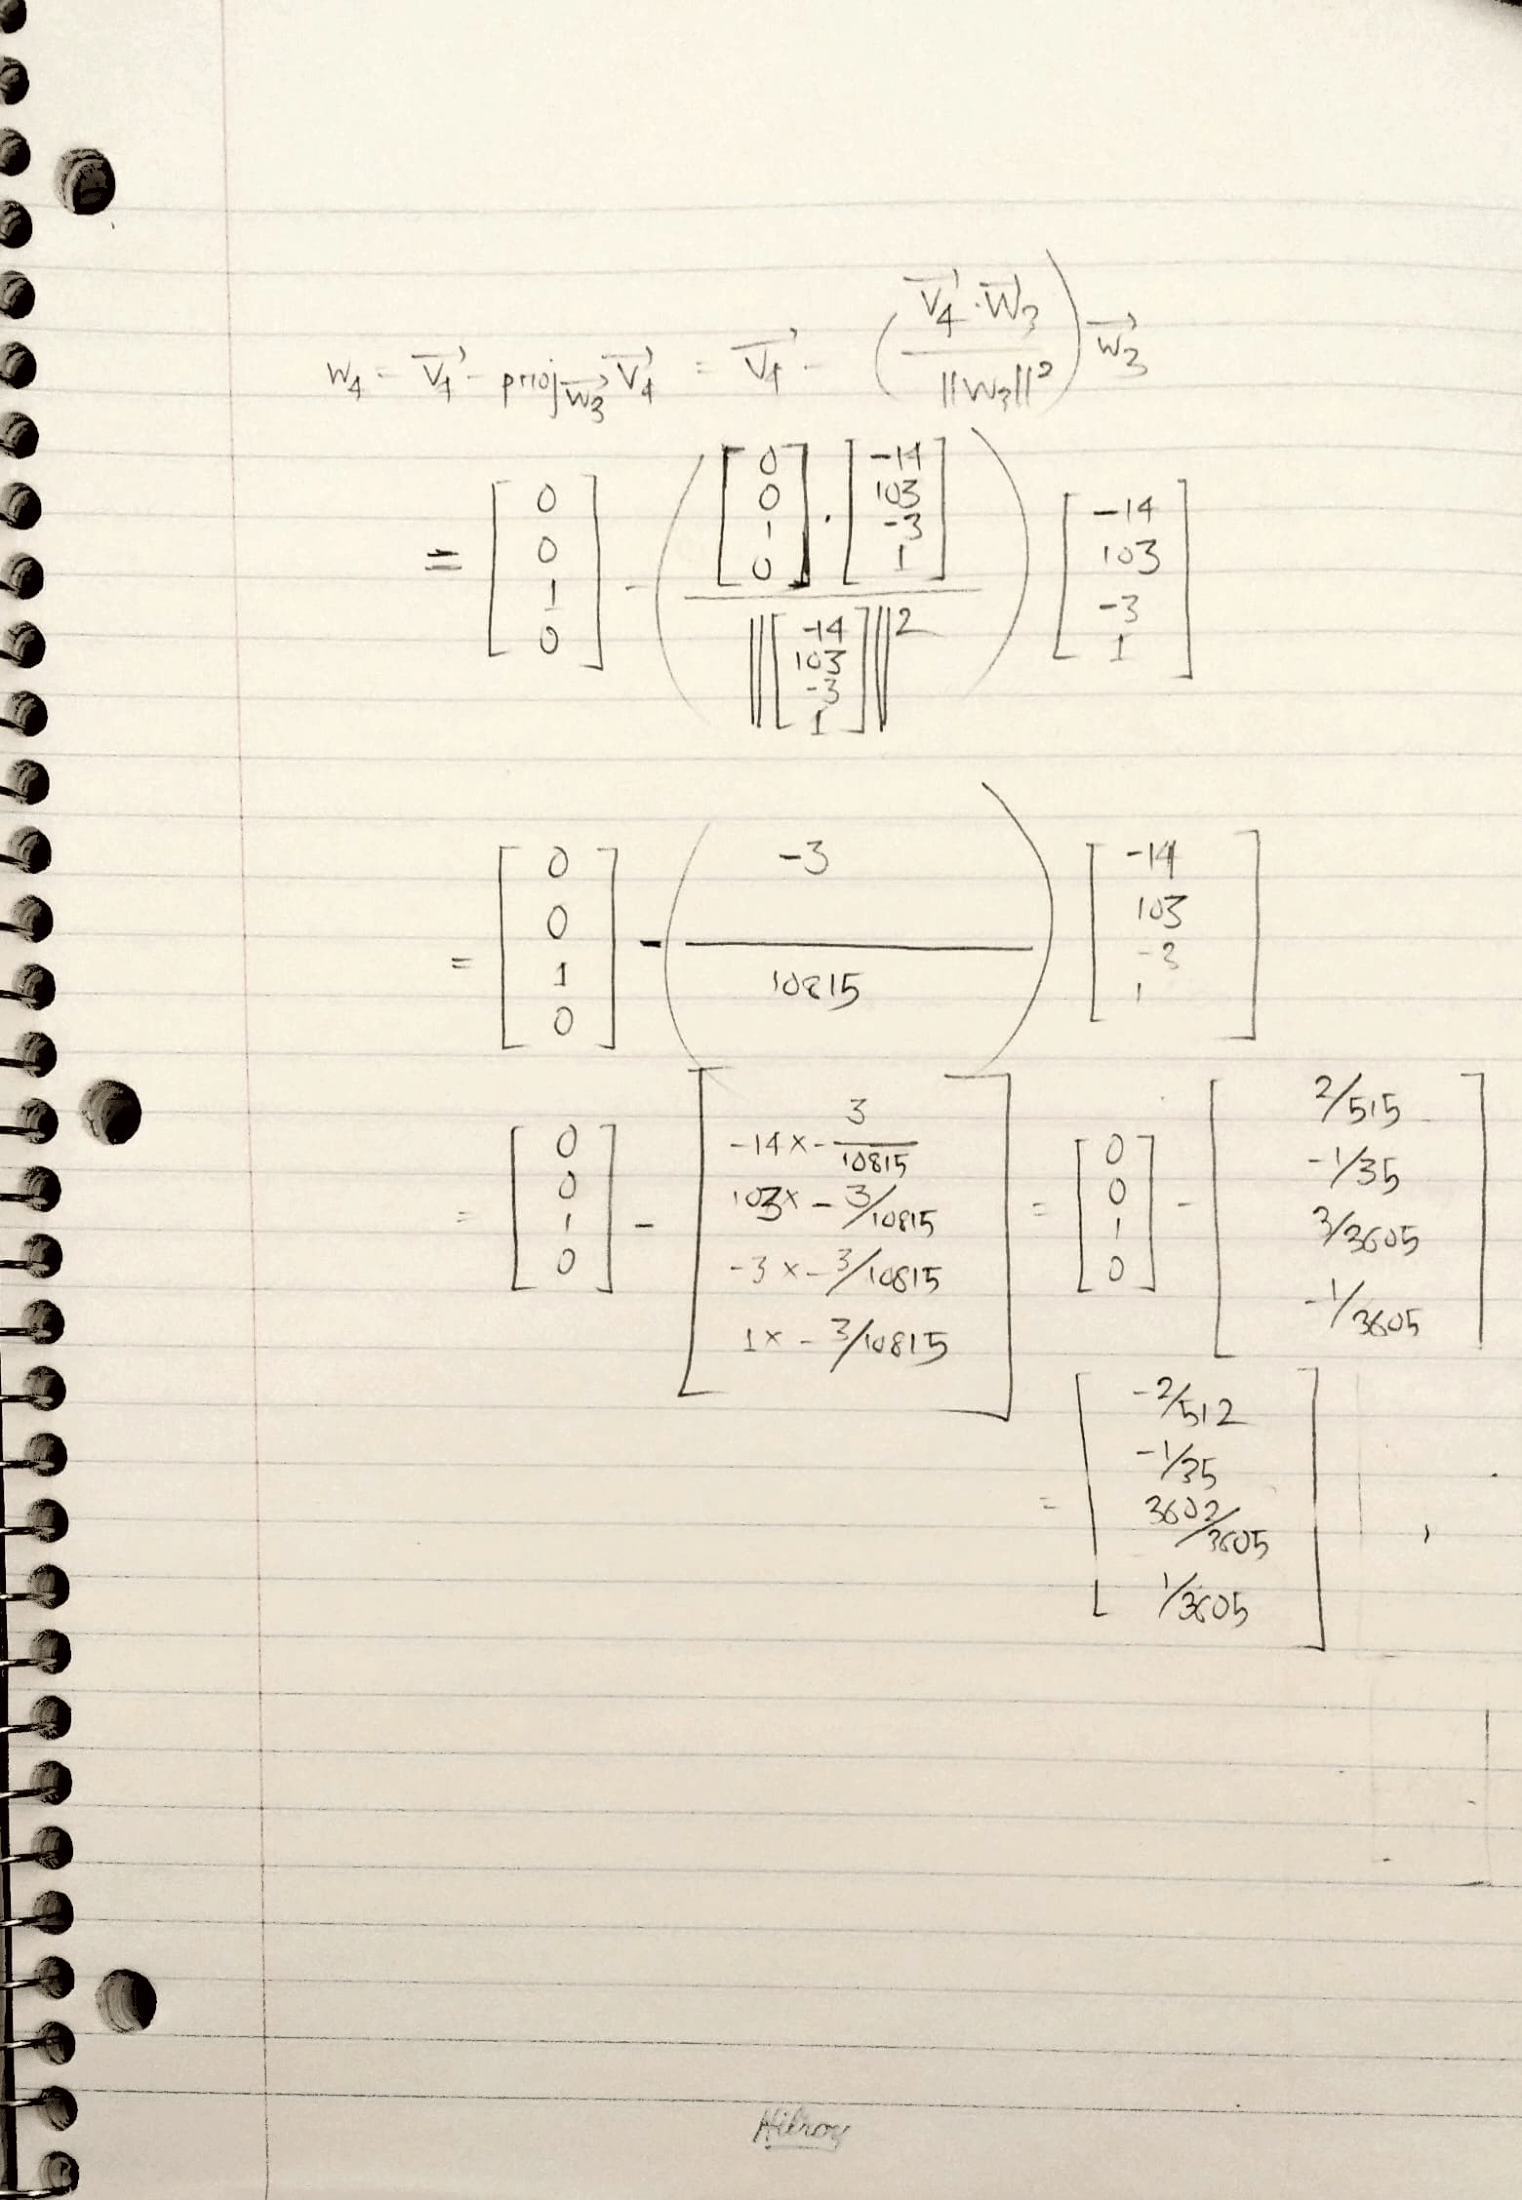 w₄ = v₄⃗ - proj w₃⃗ v₄⃗ = v₄⃗ - ( v₄⃗ · w₃⃗ / ||w₃||² ) w₃⃗
= [ 0 0 1 0 ] - ( [ 0 0 1 0 ] · [ -14 103 -3 1 ] / || [ -14 103 -3 1 ] ||² ) [ -14 103 -3 1 ]
= [ 0 0 1 0 ] - ( -3 / 10815 ) [ -14 103 -3 1 ]
= [ 0 0 1 0 ] - [ -14 × - 3/10815 103 × - 3/10815 -3 × - 3/10815 1 × - 3/10815 ] = [ 0 0 1 0 ] - [ 2/515 -1/35 3/3605 -1/3605 ]
= [ -2/512 -1/35 3602/3605 1/3605 ] ,
Hilroy